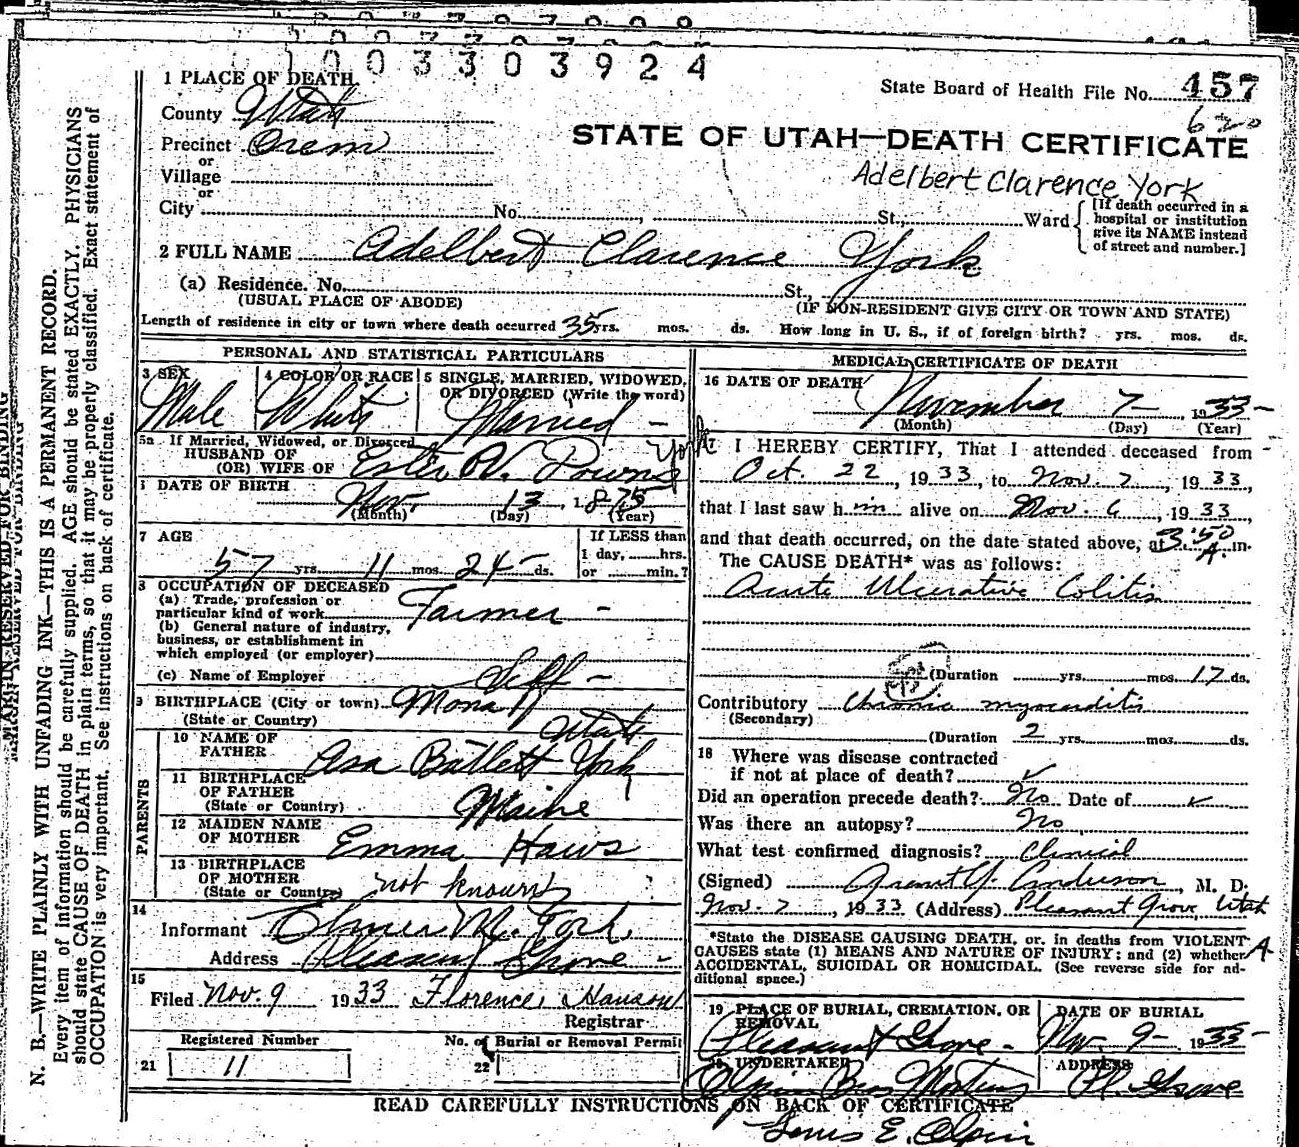 1 0 0 3 3 0 3 9 2 4
1 PLACE OF DEATH
State Board of Health File No. 457
620
County Utah
STATE OF UTAH—DEATH CERTIFICATE
Precinct Orem
or
Adelbert Clarence York
Village
or
City No. St., Ward
[If death occurred in a
hospital or institution
give its NAME instead
of street and number.]
2 FULL NAME Adelbert Clarence York
(a) Residence. No. St.,
(USUAL PLACE OF ABODE) (IF NON-RESIDENT GIVE CITY OR TOWN AND STATE)
Length of residence in city or town where death occurred 35 yrs. mos. ds. How long in U. S., if of foreign birth? yrs. mos. ds.
PERSONAL AND STATISTICAL PARTICULARS
3 SEX
Male
4 COLOR OR RACE
White
5 SINGLE, MARRIED, WIDOWED,
OR DIVORCED (Write the word)
Married -
5a If Married, Widowed, or Divorced
HUSBAND OF
(OR) WIFE OF York
DATE OF BIRTH
Nov. 13, 1875
(Month) (Day) (Year)
7 AGE
57 yrs. 11 mos. 24 ds.
If LESS than
1 day, hrs.
or min.?
8 OCCUPATION OF DECEASED
(a) Trade, profession or
particular kind of work Farmer -
(b) General nature of industry,
business, or establishment in
which employed (or employer)
(c) Name of Employer Self -
9 BIRTHPLACE (City or town) Mona
(State or Country) Utah
PARENTS
10 NAME OF
FATHER Asa Batlett York
11 BIRTHPLACE
OF FATHER
(State or Country) Maine
12 MAIDEN NAME
OF MOTHER Emma Haws
13 BIRTHPLACE
OF MOTHER
(State or Country) not known
14
Informant Elmer M. York
Address Pleasant Grove -
15
Filed Nov. 9 1933 Florence Hanson
Registrar
Registered Number
21 11
No. of Burial or Removal Permit
22
MEDICAL CERTIFICATE OF DEATH
16 DATE OF DEATH
November 7- 1933-
(Month) (Day) (Year)
17 I HEREBY CERTIFY, That I attended deceased from
Oct. 22, 1933, to Nov. 7, 1933,
that I last saw h im alive on Nov. 6, 1933,
and that death occurred, on the date stated above, at 3:50 A m.
The CAUSE DEATH* was as follows:
Acute Ulcerative Colitis
(Duration yrs. mos. 17 ds.
Contributory Chronic myocarditis
(Secondary)
(Duration 2 yrs. mos. ds.
18 Where was disease contracted
if not at place of death? ✓
Did an operation precede death? No Date of ✓
Was there an autopsy? No
What test confirmed diagnosis? Clinical
(Signed) Grant Y. Anderson, M. D.
Nov. 7, 1933 (Address) Pleasant Grove, Utah
*State the DISEASE CAUSING DEATH, or, in deaths from VIOLENT
CAUSES state (1) MEANS AND NATURE OF INJURY; and (2) whether
ACCIDENTAL, SUICIDAL OR HOMICIDAL. (See reverse side for ad-
ditional space.)
19 PLACE OF BURIAL, CREMATION, OR
REMOVAL
Pleasant Grove -
DATE OF BURIAL
Nov. 9- 1933-
UNDERTAKER
Olpin Bros Mortuary
ADDRESS
Pl. Grove
READ CAREFULLY INSTRUCTIONS ON BACK OF CERTIFICATE
E. Olpin
MARGIN RESERVED FOR BINDING
N. B.—WRITE PLAINLY WITH UNFADING INK—THIS IS A PERMANENT RECORD.
Every item of information should be carefully supplied. AGE should be stated EXACTLY. PHYSICIANS
should state CAUSE OF DEATH in plain terms, so that it may be properly classified. Exact statement of
OCCUPATION is very important. See instructions on back of certificate.